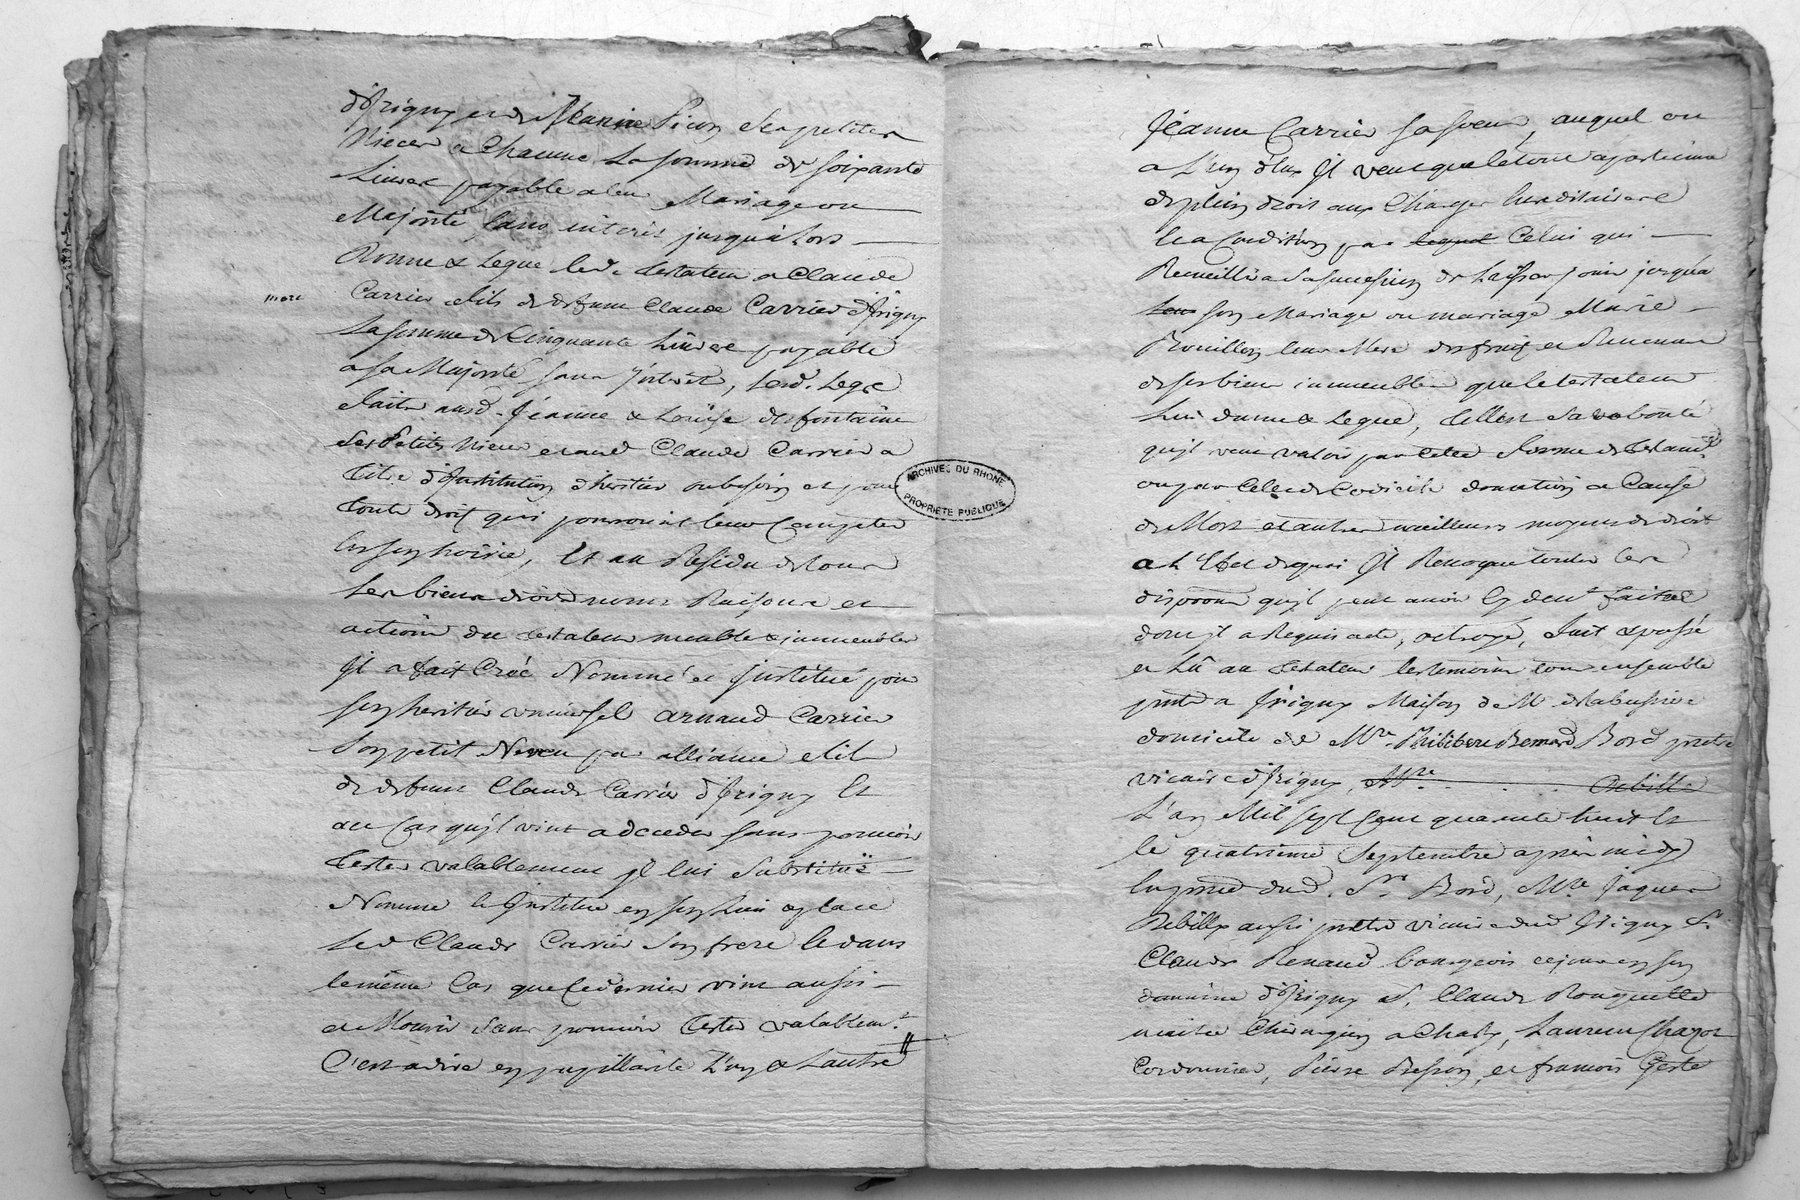 d'Irigny et de Jeanne Picon ses petites
Nieces a Chacune La somme de soixante
Livres payable a leur Mariage ou
Majorité sans interis jusqu'a Lors
Donne & Legue led. testateur a Claude
mort
Carrier fils de defunt Claude Carrier d'Irigny
La somme de Cinquante Livres payable
a sa Majorité sans Interet, lesd. Legs
faits ausd. Jeanne & Louise desfontaine
ses Petites Nieces et aud Claude Carrier a
titre d'Institution d'heritier au besoin et pour
tout droit qui pourroient leur Competer
en son hoirie, Et au Residu de tous
ses biens droits noms Raisons et
actions du testateur meubles & immeubles
Il a fait Créé Nommé et Institué pour
son heritier universel arnaud Carrier
son petit Neveu par alliance fils
de defunt Claude Carrier d'Irigny Et
au Cas qu'jl vint a deceder sans pouvoir
tester valablement jl lui substituë
Nomme & Institue en son Lieu & place
led Claude Carrier son frere & dans
le même Cas que Ce dernier vint aussi
a Mourir sans pouvoir tester valablemt.
C'est a dire en pupillarité L'un & L'autre #
ARCHIVES DU RHONE
PROPRIÉTÉ PUBLIQUE
Jeanne Carrier sa soeur, auquel ou
a L'un d'eux Il veut que le tout apartienne
de plein droit aux Charges hereditaires &
a Condition par lequel Celui qui
Recueillira sa succession de Laisser jouir jusqu'a
leur son Mariage ou mariage Marie
Bouillon leur Mere des fruits et Revenus
de ses biens immeubles que le testateur
Lui donne & Legue, telle est sa volonté
qu'jl veut valoir par Cette forme de testamt
ou par Celle de Codicile donation a Cause
de Mort et autres meilleurs moyens de droit
a L'Effet de quoi Il Revoque toutes les
dispoons qu'jl peut avoir Cy devt faites
dont jl a Requis acte, octroyé, fait & passé
et Lû au testateur les temoins tous ensemble
pnts a Irigny Maison de M. de la
domicile de Mre. Philibert Bernard Bord pretre
vicaire d'Irigny, Mre. . . . . Rebille
L'an Mil sept Cent quarante huit Et
le quatrieme Septembre apres midy
En pnce dud. Sr Bord, Mre Jaques
Rebilly aussi pretre vicaire dud Irigny Sr.
Claude Renaud bourgeois ce jour en son
domaine d'Irigny S. Claude Rouquette
maitre Chirurgien a Charly, Laurent Chazot
Cordonnier, Pierre Besson, et francois Geste